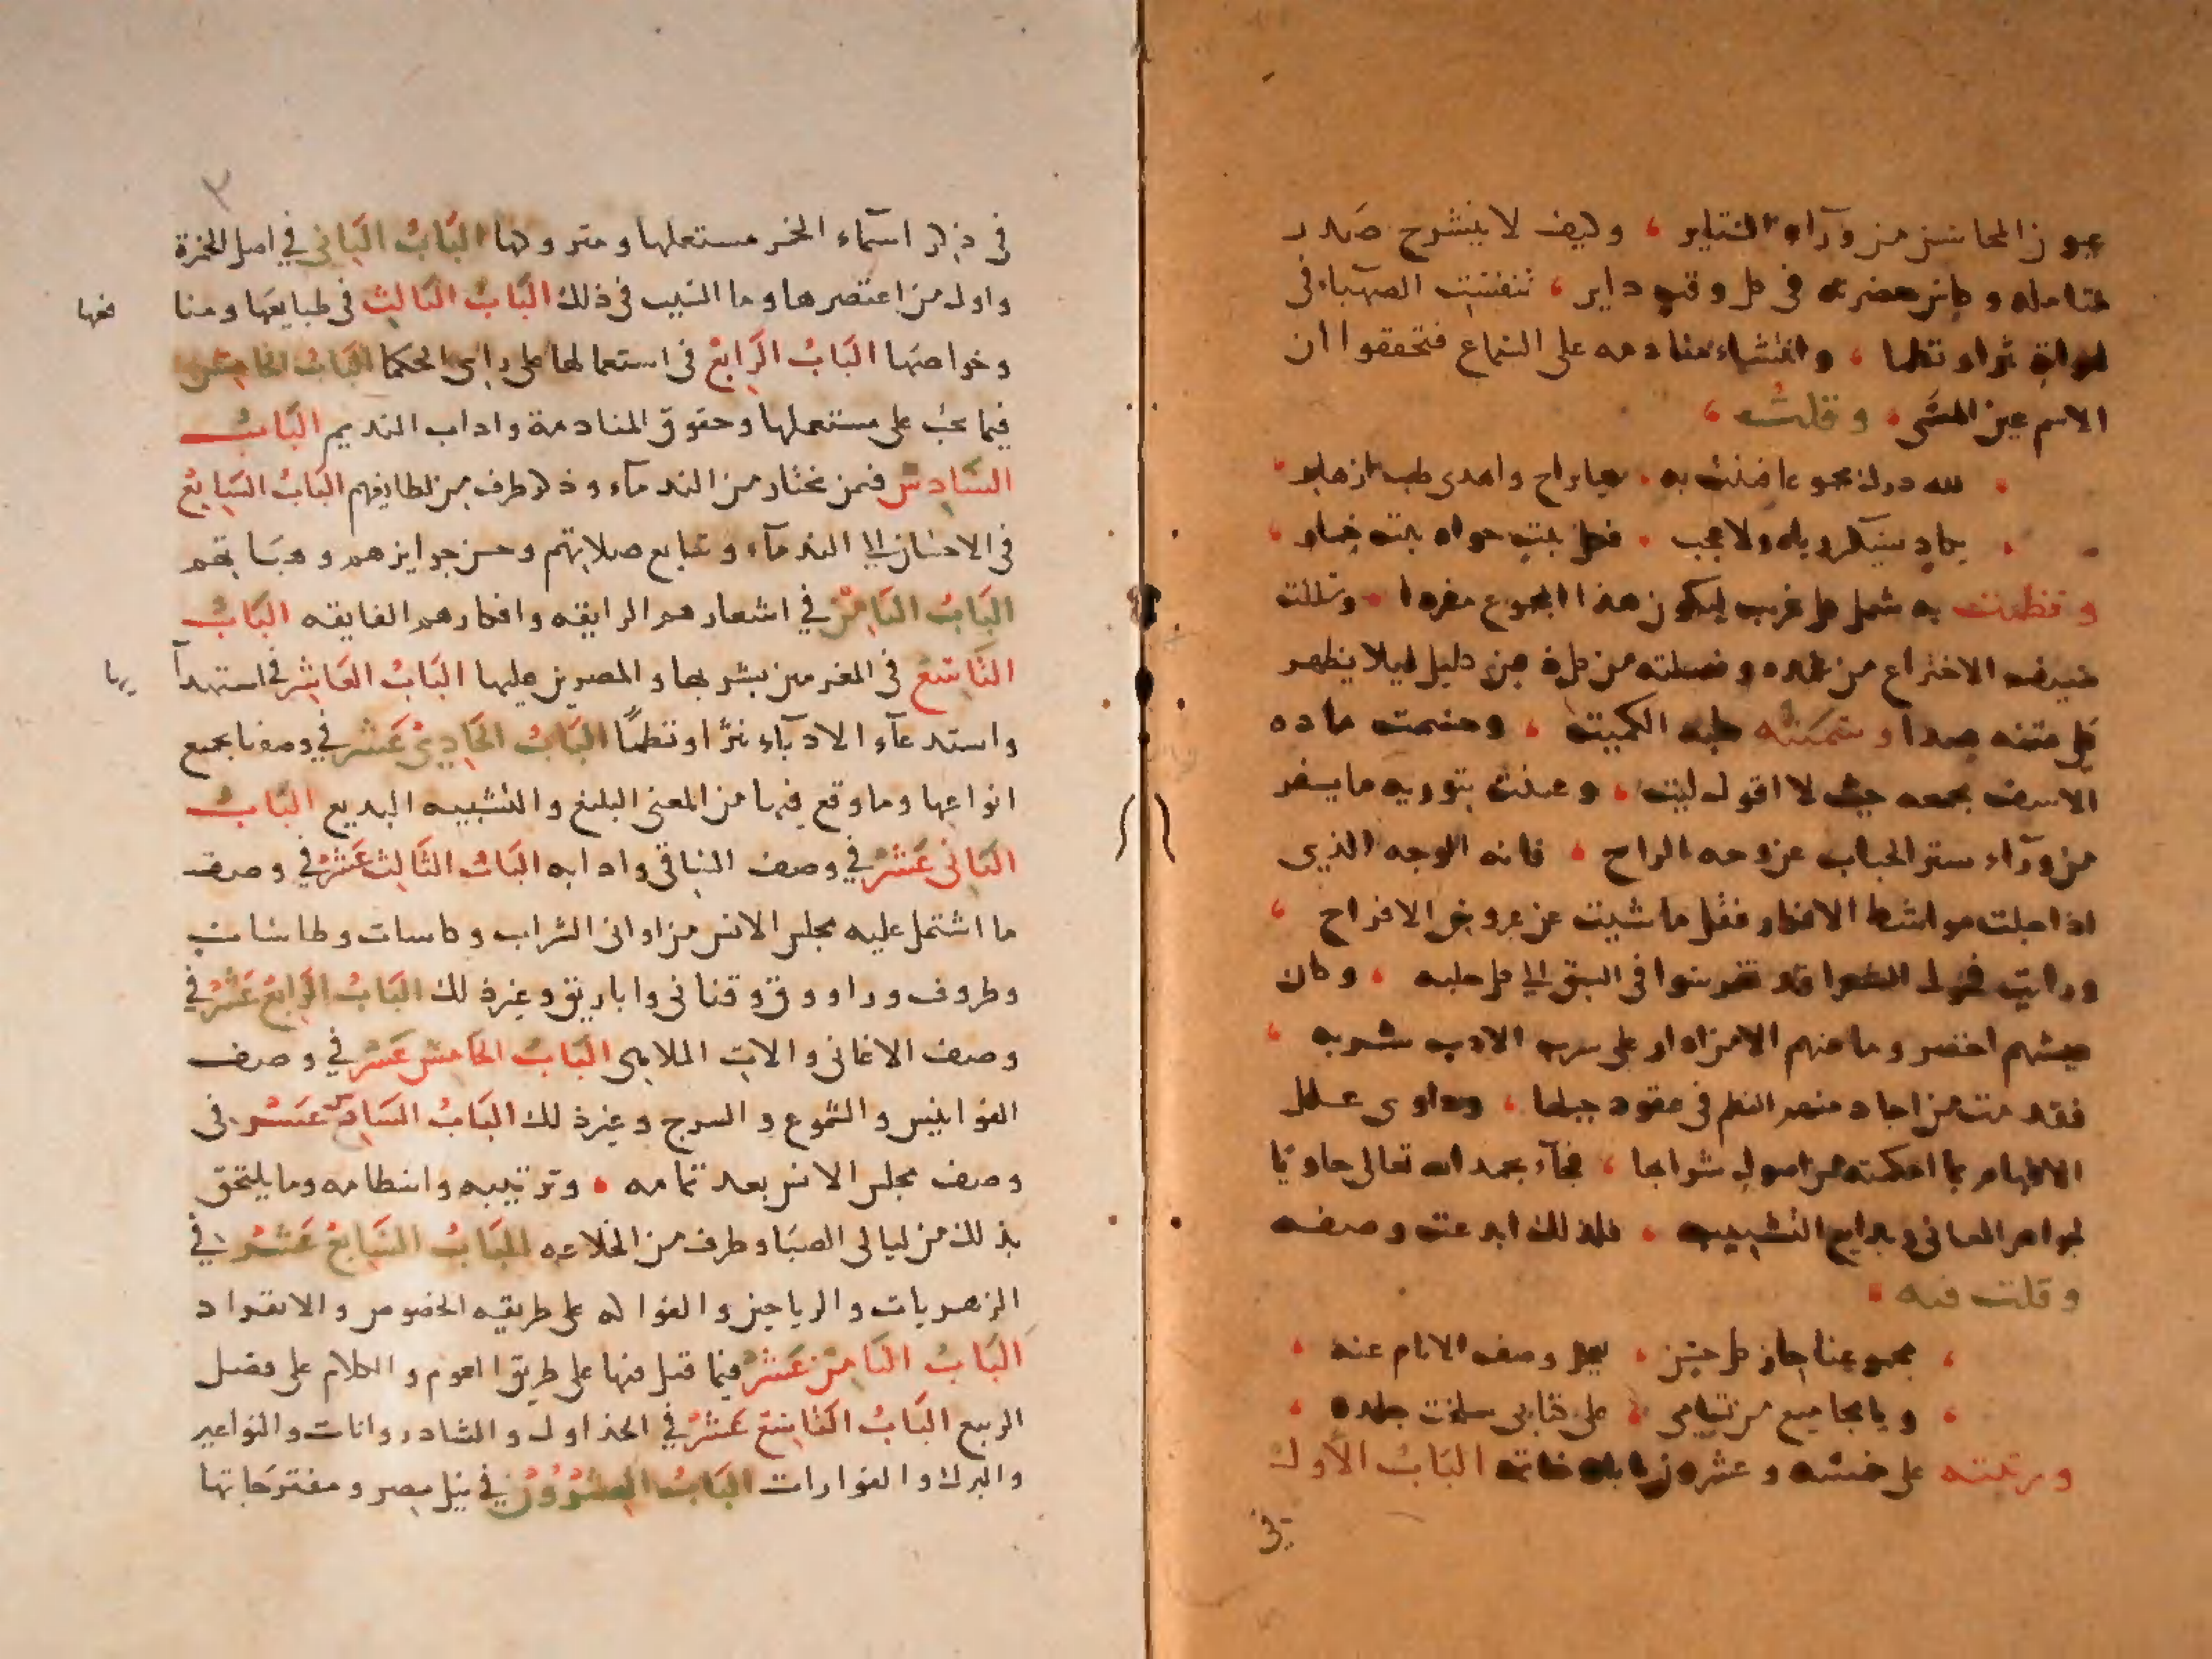 عيون المحاسن من ورآء الستاير ، وكيف لا ينشرح صدر
متامله وكاس حضرته فى كل وقت داير ، تنفنت الصهباء فى
اوصافه نثرا ونظما ، وانتشاء منادمه على السماع فتحققوا ان
الاسم عين المسمى ، وقلت ،
لله درك مجموعا فننت به ، حيا براح واهدى طيب ازهار
يكاد يسكر رياه ولا عجب ، فكل بيت حواه بيت خمار
ونظمت به شمل كل غريب ليكون هذا المجموع مفردا ، وسللت
سيف الاختراع من غمده وغسلته من كل دليل ليلا يظهر
على متنه صدا وسميته حلبة الكميت ، وحسمت مادة
الاسف بجمعه حيث لا اقول ليت ، وعنيت بتوريه ما يسفر
من ورآء ستر الحباب عن وجه الراح ، فانه الوجه الذي
اذا جلت مواشط الافكار فقل ما شيت عن عروس الافراح ،
ورايت فحول الشعرا قد تفرسنوا فى السبق الى كل حلبه ، وكان
عيشهم اخضر وما منهم الا من ادار على سرب الادب شربه ،
فقد مت من اجاد منهم النظم فى عقود حبابها ، وداوى علل
الافهام بما احكمته من اصول شرابها ، فجآء بحمد الله تعالى حاويا
لجواهر المعانى وبدايع التشبيه ، فلذلك ابدعت وصفه
وقلت فيه ،
مجموعنا جاز كل حسن ، يعجز وصف الانام عنه ،
ويا مجاميع من تسامى ، على كتابى سلخت جلده ،
ورتبته على خمسه وعشرون بابا وخاتمه الباب الأول
فى
٣
فى ذكر اسمآء الخمر مستعملها ومتروكها الباب الثانى فى اصل الخمرة
واول من اعتصرها وما السبب فى ذلك الباب الثالث فى طبايعها ومنا
فعها
وخواصها الباب الرابع فى استعمالها على راى الحكما الباب الخامس
فيما يجب على مستعملها وحقوق المنادمة واداب النديم الباب
السادس فمن يختار من الندمآء وذكر طرف من لطايفهم الباب السابع
فى الاحسان الى الندمآء وتتابع صلاتهم وحسن جوايزهم وهباتهم
الباب الثامن فى اشعارهم الرايقه وافكارهم الفايقه الباب
التاسع فى المغرمين بشربها والمصرين عليها الباب العاشر فى استهدآ
يها
واستدعآء الادبآء نثرًا ونظمًا الباب الحادى عشر فى وصفنا بجميع
انواعها وما وقع فيها من المعنى البليغ والتشبيه البديع الباب
الثانى عشر فى وصف الساقى وادابه الباب الثالث عشر فى وصف
ما اشتمل عليه مجلس الانس من اوانى الشراب وكاسات وطاسات
وظروف وراووق وقنانى واباريق وغير ذلك الباب الرابع عشر فى
وصف الاغانى والات الملاهى الباب الخامس عشر فى وصف
الفوانيس والشموع والسرج وغير ذلك الباب السادس عشر فى
وصف مجلس الانس بعد تمامه ، وترتيبه وانتظامه وما يلتحق
بذلك من ليالى الصبا وطرف من الخلاعه الباب السابع عشر فى
الزهريات والرياحين والفواكه على طريقه الخصوص والانفراد
الباب الثامن عشر فيما قيل فيها على طريق العموم والكلام على فضل
الربيع الباب التاسع عشر فى الجداول والشادروانات والنواعير
والبرك والفوارات الباب العشرون فى نيل مصر ومفترجاتها